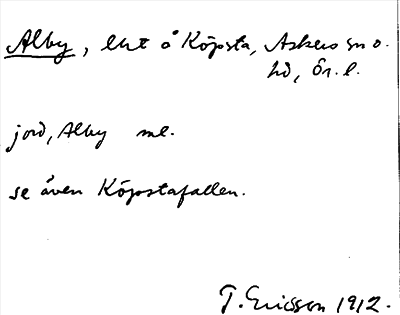 Alby, lht å Köpsta, Askers sn o.
hd, Ör. l.
jord, Alby ml.
se även Köpstafallen.
T. Ericsson 1912.